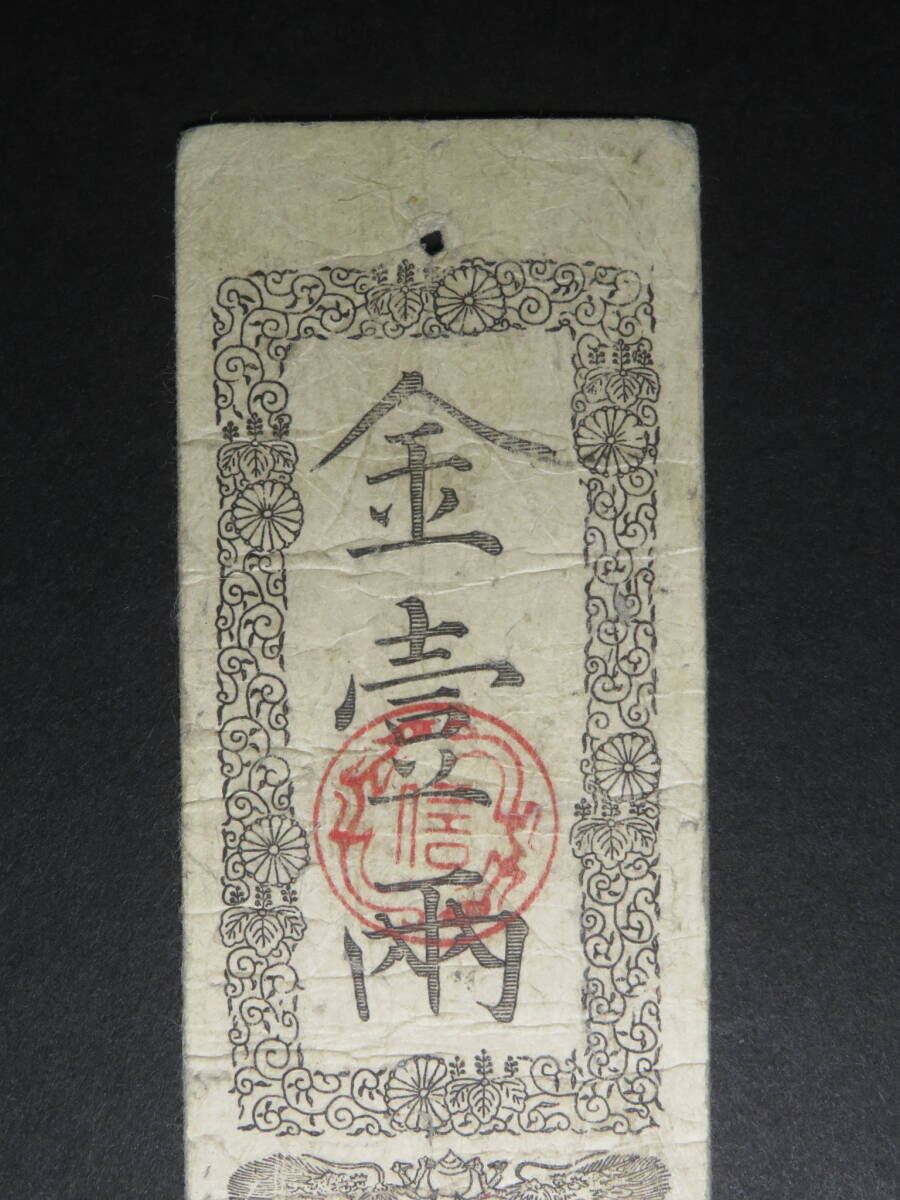 金壹兩
信